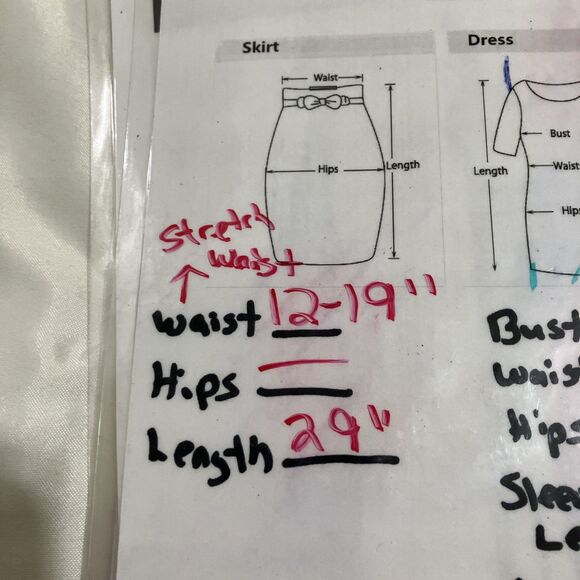 Skirt
Waist
Hips
Length
Stretch
Waist
Waist 12-19"
Hips
Length 29"
Dress
Bust
Waist
Length
Hips
Bust
Waist
Hips